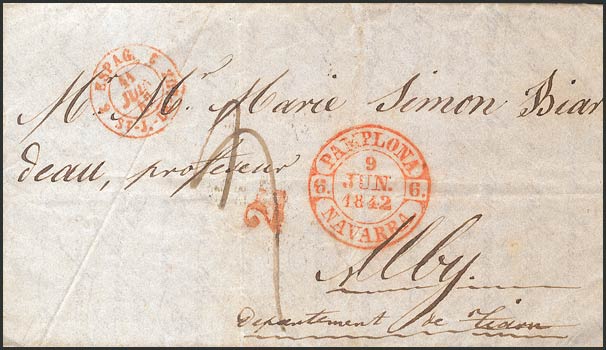 ESPAG.
JUIN
ST-J.
Mr. Mr. Marie Simon Biar
deau, professeur
PAMPLONA
9
6. JUN. 6.
1842
NAVARRA
2
Alby.
departement de